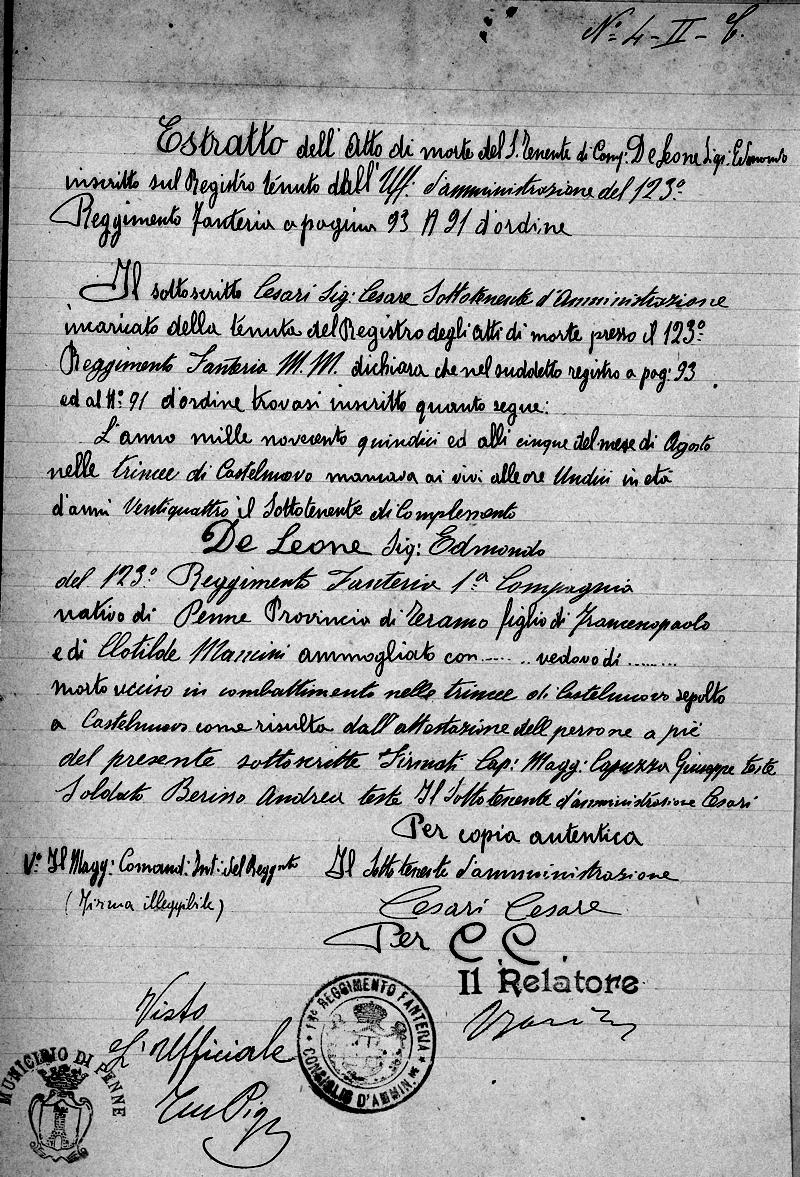 Nº 4-II-C.
Estratto dell'Atto di morte del S. Tenente di Comp: De Leone Sig: Edmondo
inscritto sul Registro tenuto dall'Uff. d'amministrazione del 123º
Reggimento Fanteria a pagina 93 N 91 d'ordine
Il sottoscritto Cesari Sig: Cesare Sottotenente d'Amministrazione
incaricato della tenuta del Registro degli Atti di morte presso il 123º
Reggimento Fanteria M.M. dichiara che nel suddetto registro a pag: 93
ed al Nº 91 d'ordine trovasi inscritto quanto segue:
L'anno mille novecento quindici ed alli cinque del mese di Agosto
nelle trincee di Castelnuovo mancava ai vivi alle ore Undici in età
d'anni Ventiquattro il Sottotenente di Complemento
De Leone Sig: Edmondo
del 123º Reggimento Fanteria 1ª Compagnia
nativo di Penne Provincia di Teramo figlio di Francescopaolo
e di Clotilde Mancini ammogliato con ...... .. vedovo di ........
morto ucciso in combattimento nelle trincee di Castelnuovo sepolto
a Castelnuovo come risulta dall'attestazione dell persone a piè
del presente sottoscritte Firmati Cap: Magg: Capuzzo Giuseppe teste
Soldato Berino Andrea teste Il Sottotenente d'amministrazione Cesari
Per copia autentica
Vº Il Magg: Comand: Int: del Reggnto
Il Sottotenente d'ammministrazione
(Firma illeggibile)
Cesari Cesare
Per C.C.
Il Relatore
Visto
L'Ufficiale
REGGIMENTO FANTERIA
CONSIGLIO D'AMMIN.NE
MUNICIPIO DI PENNE